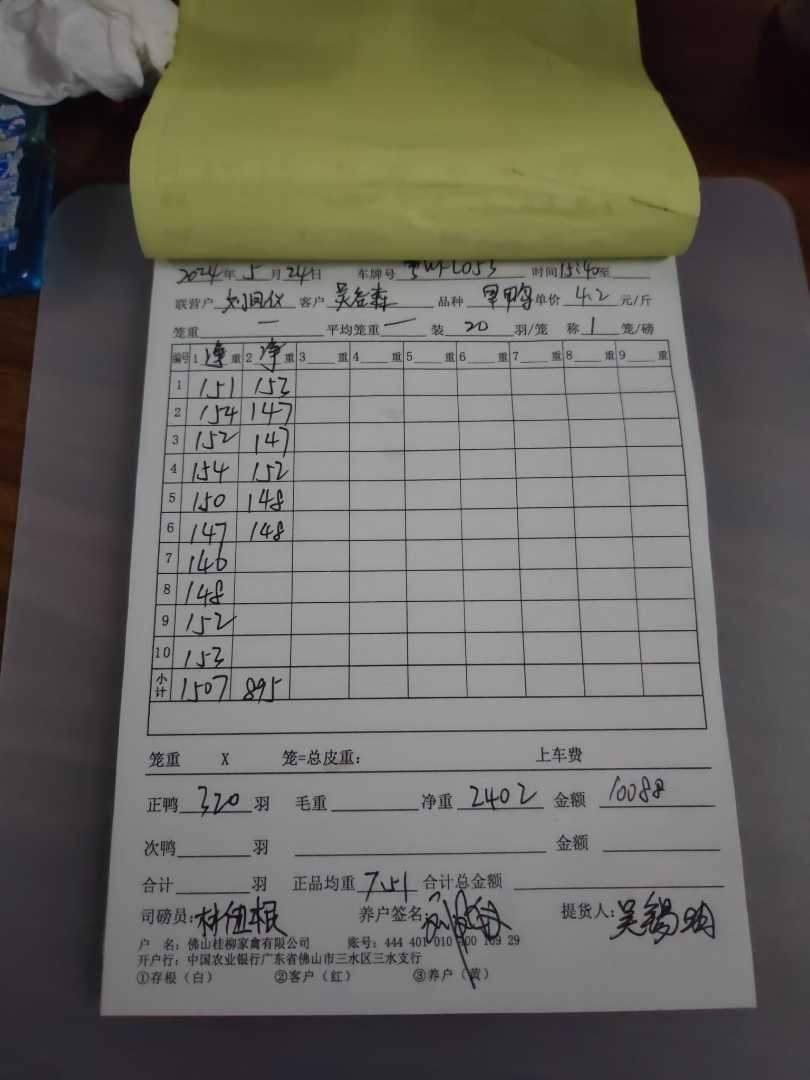 2024年 5 月 24日 车牌号 L053 时间 15:40 至
联营户 客户 吴 森 品种 单价 4.2 元/斤
笼重 — 平均笼重 — 装 20 羽/笼 称 1 笼/磅
编号 1 净 重 2 净 重 3 重 4 重 5 重 6 重 7 重 8 重 9 重
1 151 153
2 154 147
3 152 147
4 154 152
5 150 148
6 147 148
7 146
8 148
9 152
10 153
小计 1507 895
笼重 X 笼=总皮重: 上车费
正鸭 320 羽 毛重 净重 2402 金额 10088
次鸭 羽 金额
合计 羽 正品均重 7.51 合计总金额
司磅员: 林伍根 养户签名 提货人: 吴锡
户 名: 佛山桂柳家禽有限公司 账号: 444 401 010 400 169 29
开户行: 中国农业银行广东省佛山市三水区三水支行
①存根(白) ②客户(红) ③养户(黄)